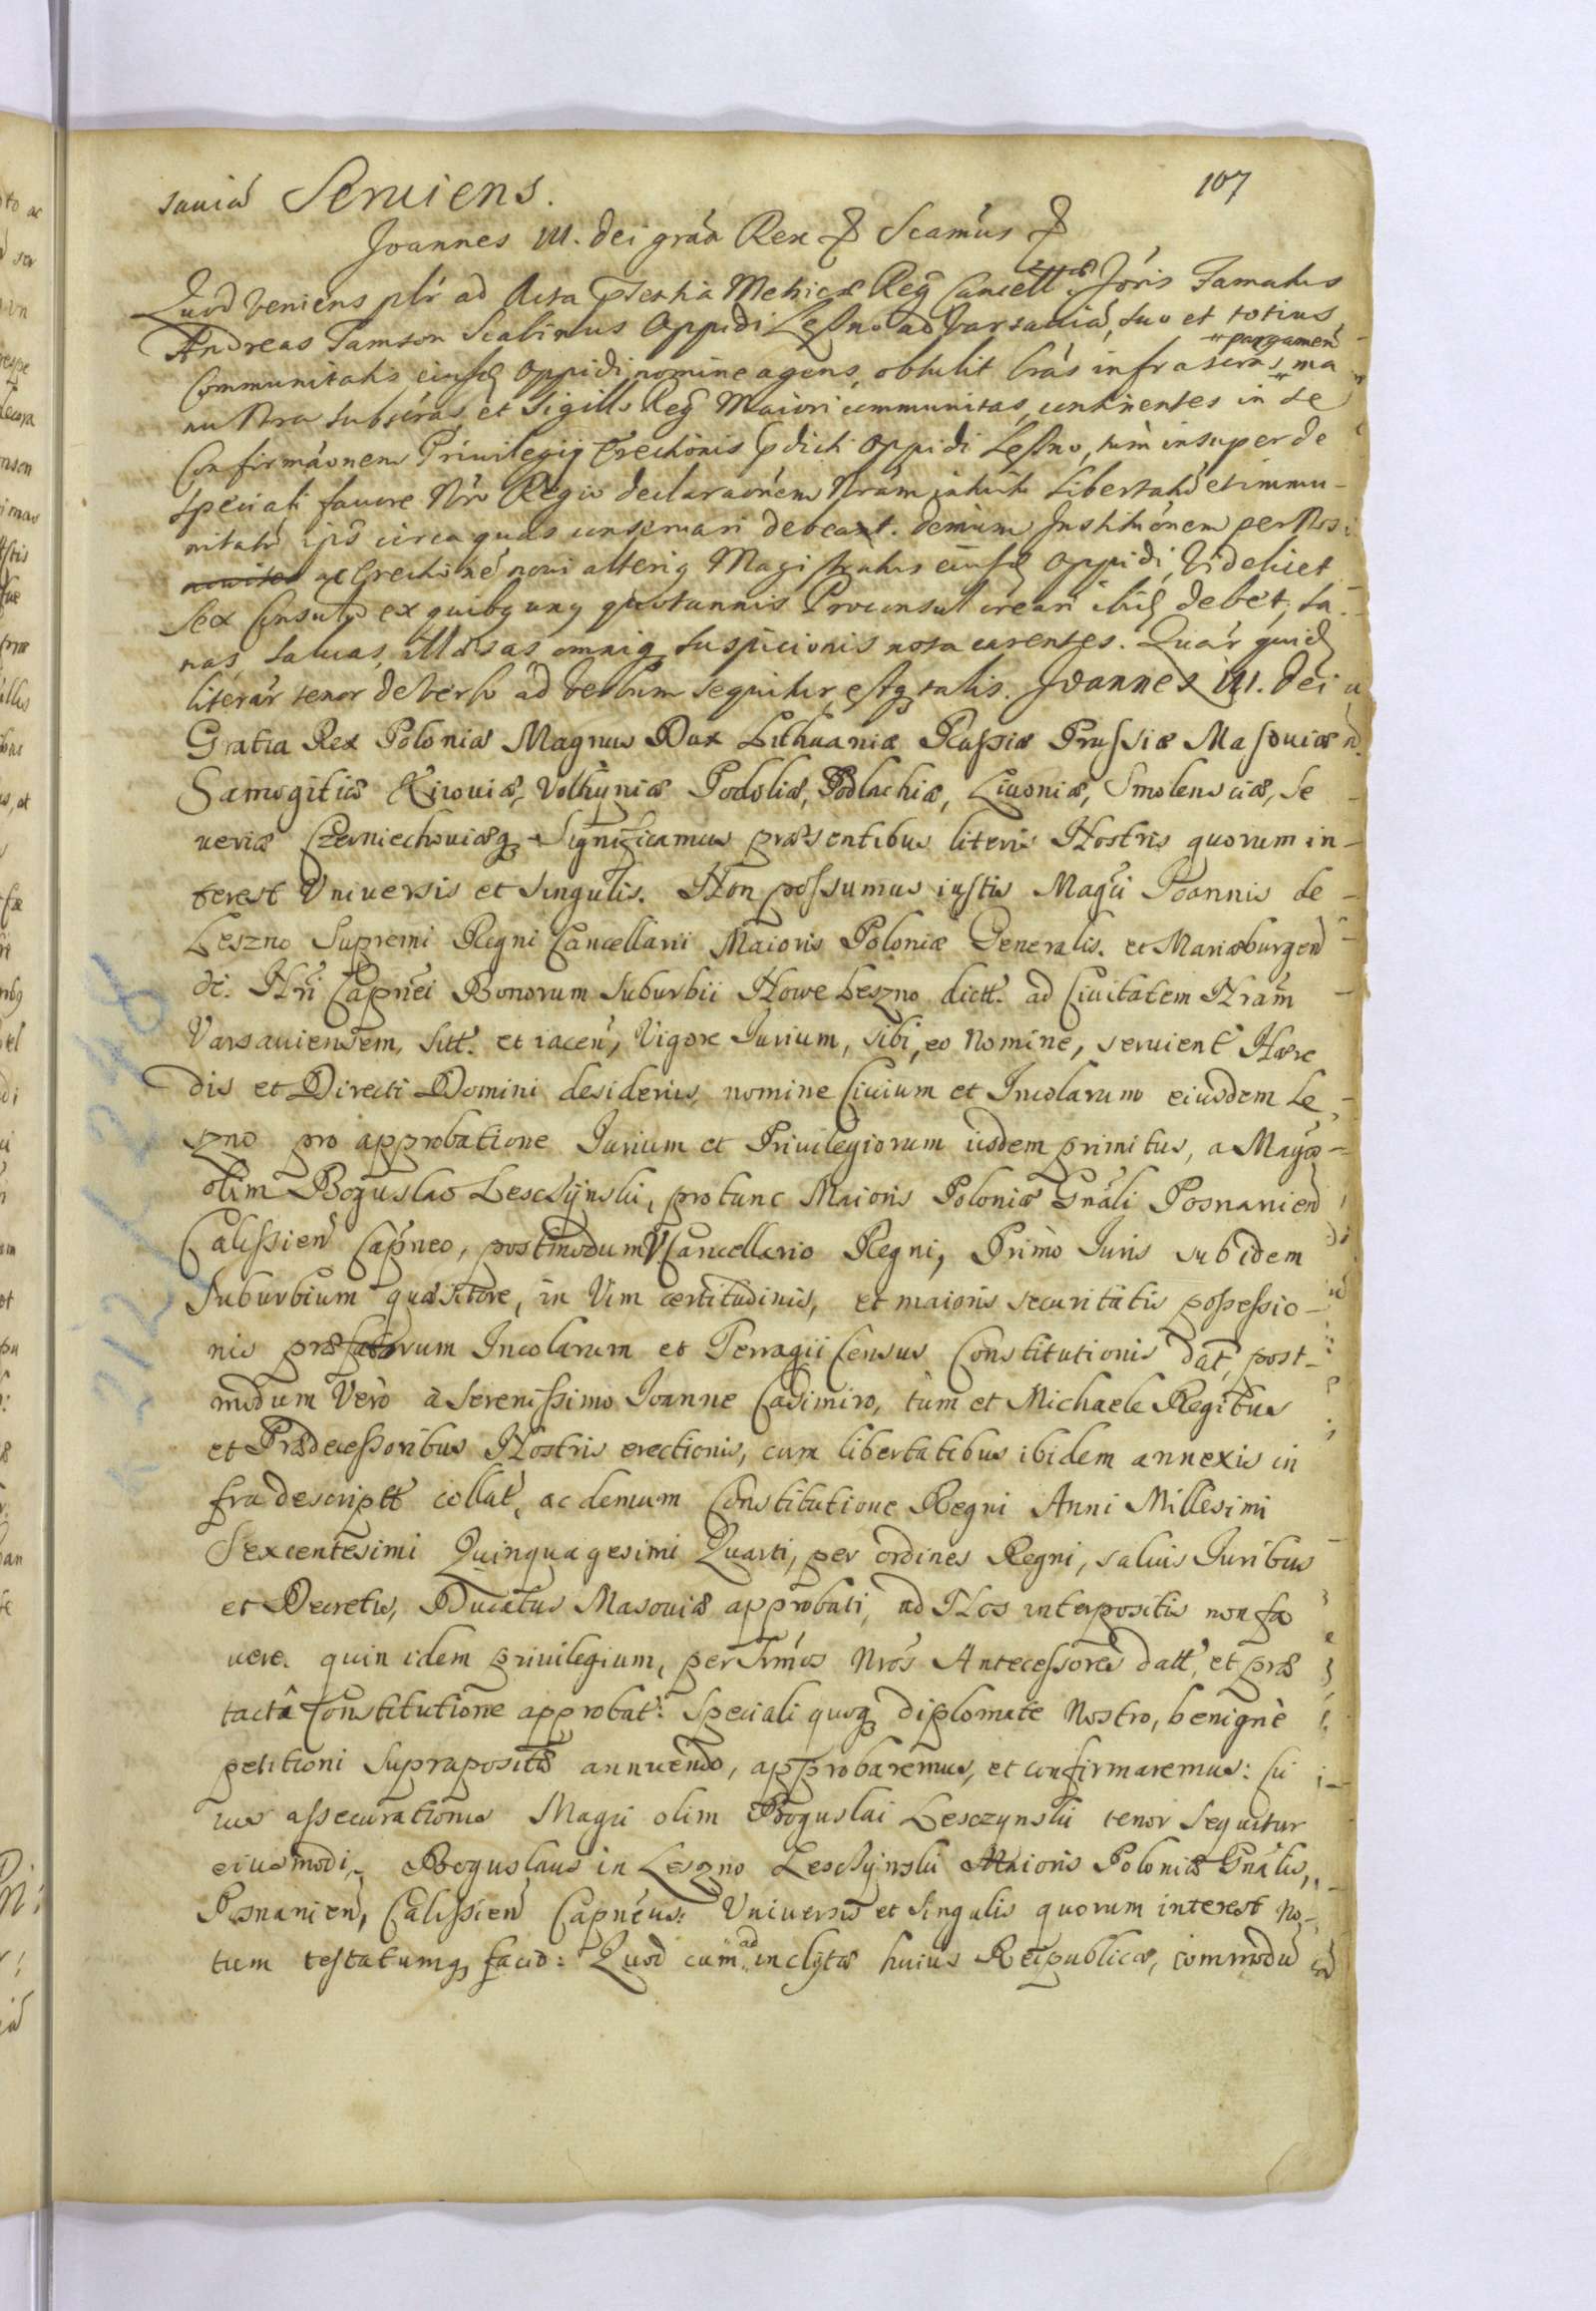 107
sauiá Seruiens.
Joannes III. dei gráa Rex & Scamús &
Quod veniens plr ad Acta pntia Metrices Reg Cancell. Minoris Famatus
Andreas Samson Scabinus Oppidi Leszno ad Varsauiá, suo et totius
Communitatis eiusd Oppidi nomine agens, obtulit lrás infrascras pargamen ma
nu Nra subscras, et Sigillo Reg Maiori communitas, continentes in se
Confirmáonem Priuilegij Erectionis pdicti Oppidi Leszno, tum insuper de
speciali fauore Nro Regio declaraonem Nrám intuitu libertatú et immu-
nitatú ips circa quas conseruari debeant. demum Institiónem per Nos
ac Erectioné noui alterig Magistratus eiusd Oppidi, Videlicet
Sex Consulú ex quibq unq quotannis Proconsul creari ibid debet, sa
nas, saluas, illaesas omniq suspicionis nota carentes. Quár quid
literár tenor de verbo ad verbum sequitur estq talis. Joannes III. Dei
Gratia Rex Poloniæ Magnus Dux Lithuaniæ Russiæ Prussiæ Masouiæ
Samogitiæ Kiiouiæ, Volhyniæ Podoliæ, Podlachiæ, Liuoniæ, Smolensciæ, Se
ueriæ Czerniechouiæq Significamus præsentibus literis Nostris quorum in-
terest Vniuersis et singulis. Non possumus iustis Magci Ioannis de
Leszno Supremi Regni Cancellarii Maioris Poloniæ Generalis. et Mariæburgen
dc. Nri Capnei Bonorum Suburbii Nowe Leszno dictt. ad Ciuitatem Nram
Varsauiensem, sitt. et iacen, Vigore Iurium, sibi, eo Nomine, seruient Hære
dis et Directi Domini desideriis, nomine Ciuium et Incolarum eiusdem Le
szno pro approbatione Iurium et Priuilegiorum iisdem primitus, a Magco
olim Boguslao Lesczÿnski, pro tunc Maioris Poloniæ Gnali Posnanien
Calissien Capneo, postmodum V. Cancellario Regni, Primò Iuris sub idem
Suburbium quæsitore, in Vim certitudinis, et maioris securitatis possessio-
nis præfatorum Incolarum et Terragii Census Constitutionis dat, post-
modum Vero à Serenissimo Ioanne Casimiro, tum et Michaele Regibus
et Prædecessoribus Nostris erectionis, cum libertatibus ibidem annexis in
fra descriptt collat, ac demum Constitutione Regni Anni Millesimi
Sexcentesimi Quinquagesimi Quarti, per ordines Regni, saluis Iuribus
et Decretis, Ducatus Masouiæ approbati, ad Nos interpositis non fa
uere. quin idem priuilegium, per Srmos Nros Antecessores datt, et præ
tactâ Constitutione approbat: Speciali quoq diplomate Nostro, benignè
petitioni supraposite annuendo, approbaremus, et confirmaremus: Cu
ius assecurationis Magci olim Boguslai Lesczynski tenor Sequitur
eiusmodi, Boguslaus in Leszno Lesczÿnski Maioris Poloniæ Gnalis,
Posnanien, Calissien Capneus: Vniuersis et singulis quorum interest no-
tum testatumq facio: Quod cum ad inclÿtæ huius Reipublicæ, commodu